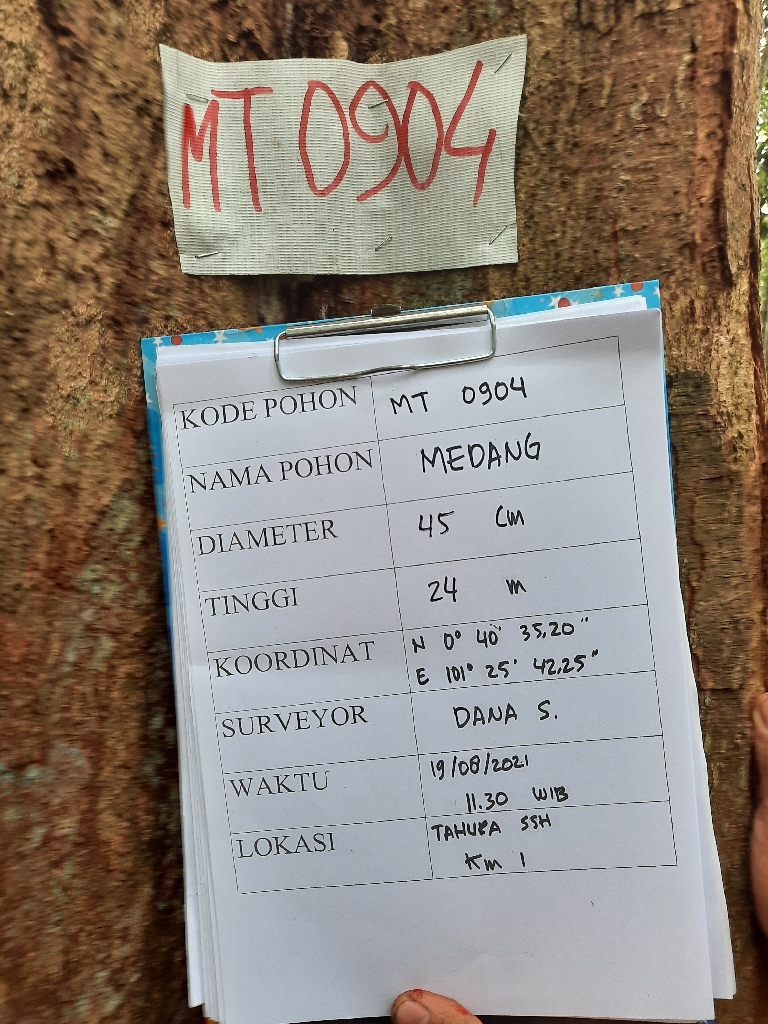 MT 0904
KODE POHON MT 0904
NAMA POHON MEDANG
DIAMETER 45 Cm
TINGGI 24 m
KOORDINAT N 0° 40' 35,20"
E 101° 25' 42,25"
SURVEYOR DANA S.
WAKTU 19/08/2021
11.30 WIB
LOKASI TAHURA SSH
Km 1